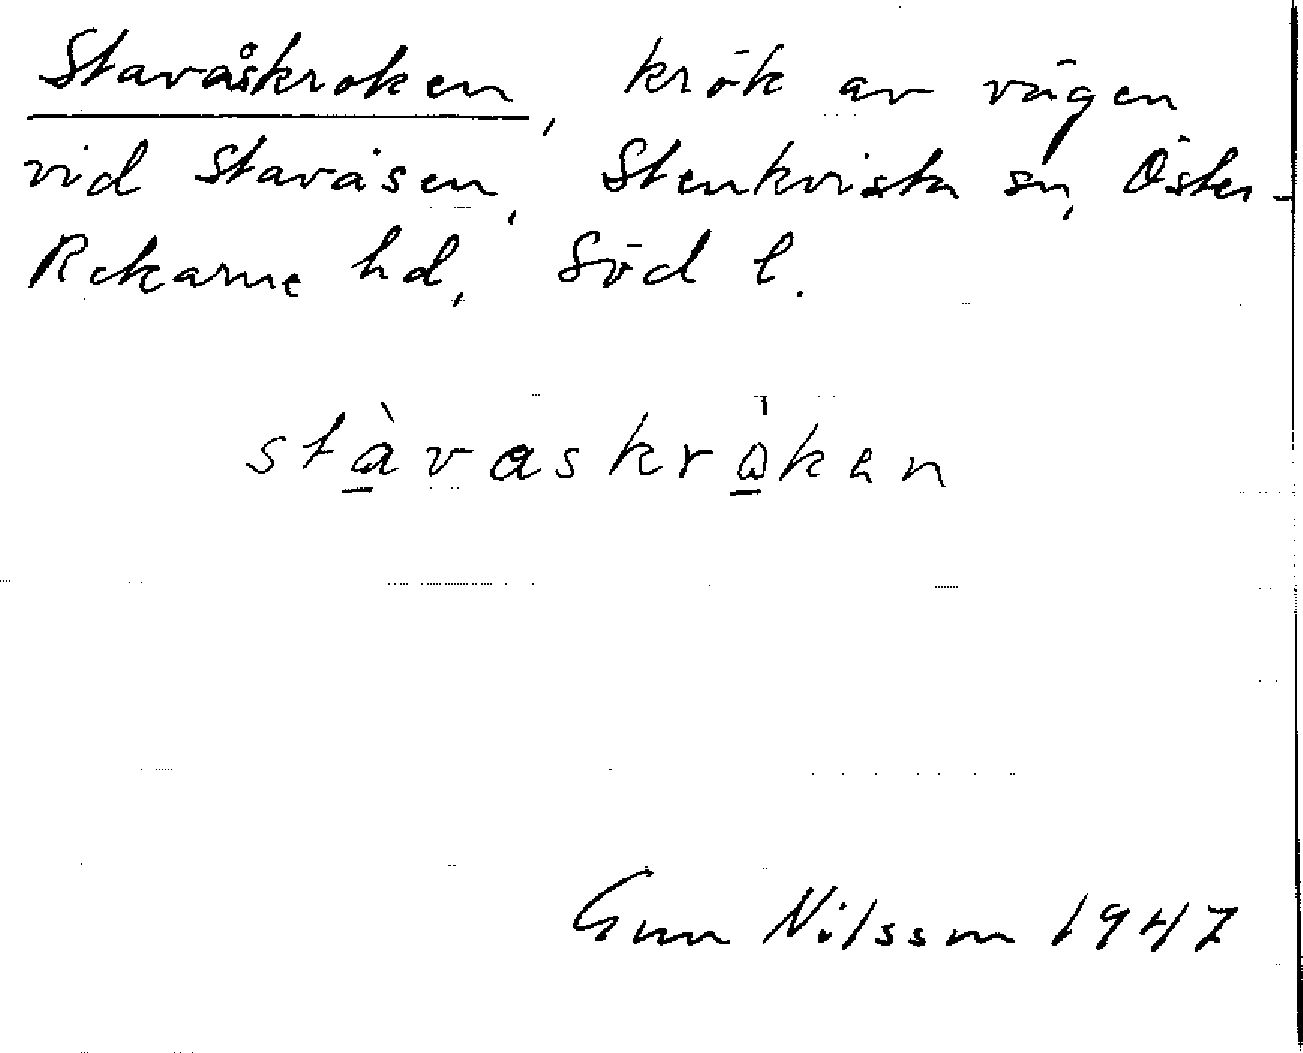 Stavåskroken, krök av vägen
vid Stavåsen, Stenkvista sn, Öster-
Rekarne hd, Söd l.
stàvaskròken
Gun Nilsson 1947